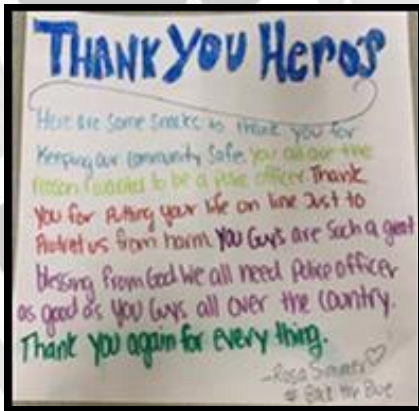 THANK YOU Hero's
Here are some snacks to thank you for
Keeping our community Safe. You all are the
reason I wanted to be a police officer. Thank
You for Putting your life on line Just to
Protret us from harm. You Guys are Such a great
blessing from God We all need Police officer
as good as You Guys all over the Country.
Thank you again for every thing.
-Rosa
# Back the Blue